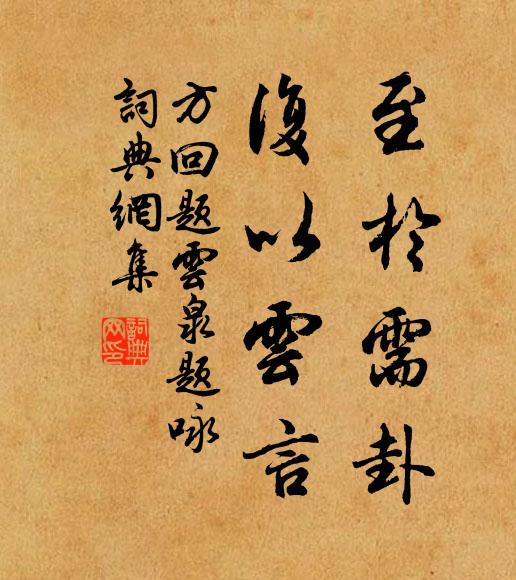 至於需卦
復以雲言
方回题雲泉题咏
詞典網集
詞典